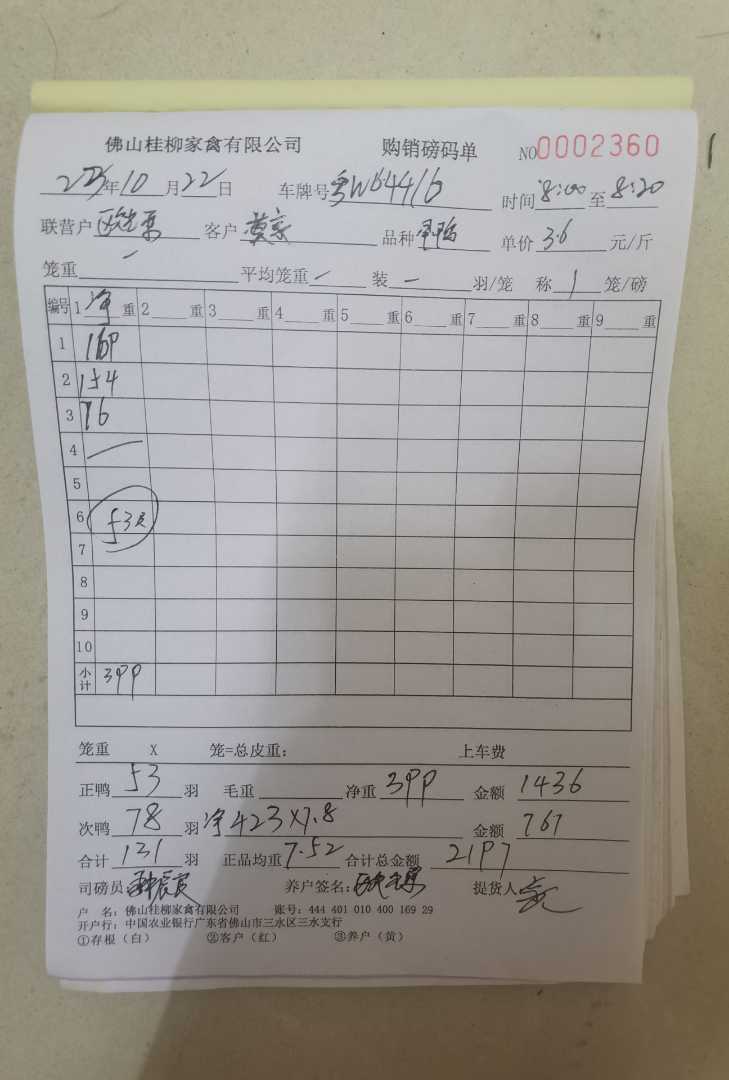 佛山桂柳家禽有限公司 购销磅码单 NO0002360
年10月22日 车牌号粤W64416 时间8:00至8:20
联营户 客户 莫家 品种 单价3.6元/斤
笼重 — 平均笼重 — 装 — 羽/笼 称 1 笼/磅
编号 1净重 2 重 3 重 4 重 5 重 6 重 7 重 8 重 9 重
1 169
2 154
3 76
4 —
5
6 53只
7
8
9
10
小计 399
笼重 X 笼=总皮重: 上车费
正鸭 53 羽 毛重 净重 399 金额 1436
次鸭 78 羽 净423×7.8 金额 767
合计 131 羽 正品均重7.52 合计总金额 2197
司磅员: 养户签名: 提货人
户 名: 佛山桂柳家禽有限公司 账号: 444 401 010 400 169 29
开户行: 中国农业银行广东省佛山市三水区三水支行
①存根(白) ②客户(红) ③养户(黄)